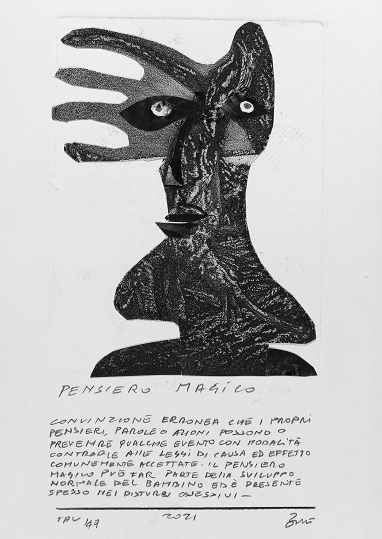 PENSIERO MAGICO
CONVINZIONE ERRONEA CHE I PROPRI
PENSIERI, PAROLE O AZIONI POSSONO O
PREVENIRE QUALCHE EVENTO CON MODALITÀ
CONTRARIE ALLE LEGGI DI CAUSA ED EFFETTO
COMUNEMENTE ACCETTATE - IL PENSIERO
MAGICO PUÒ FAR PARTE DELLO SVILUPPO
NORMALE DEL BAMBINO ED È PRESENTE
SPESSO NEI DISTURBI OSSESSIVI -
TAV 2021